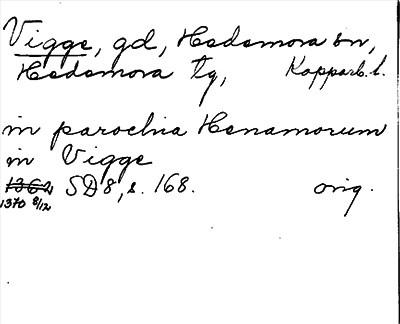 Vigge, gd, Hedemora sn,
Hedemora tg, Kopparb. l.
in parochia Henamorum
in Vigge
1362 SD 8, s. 168. orig.
1370 8/12